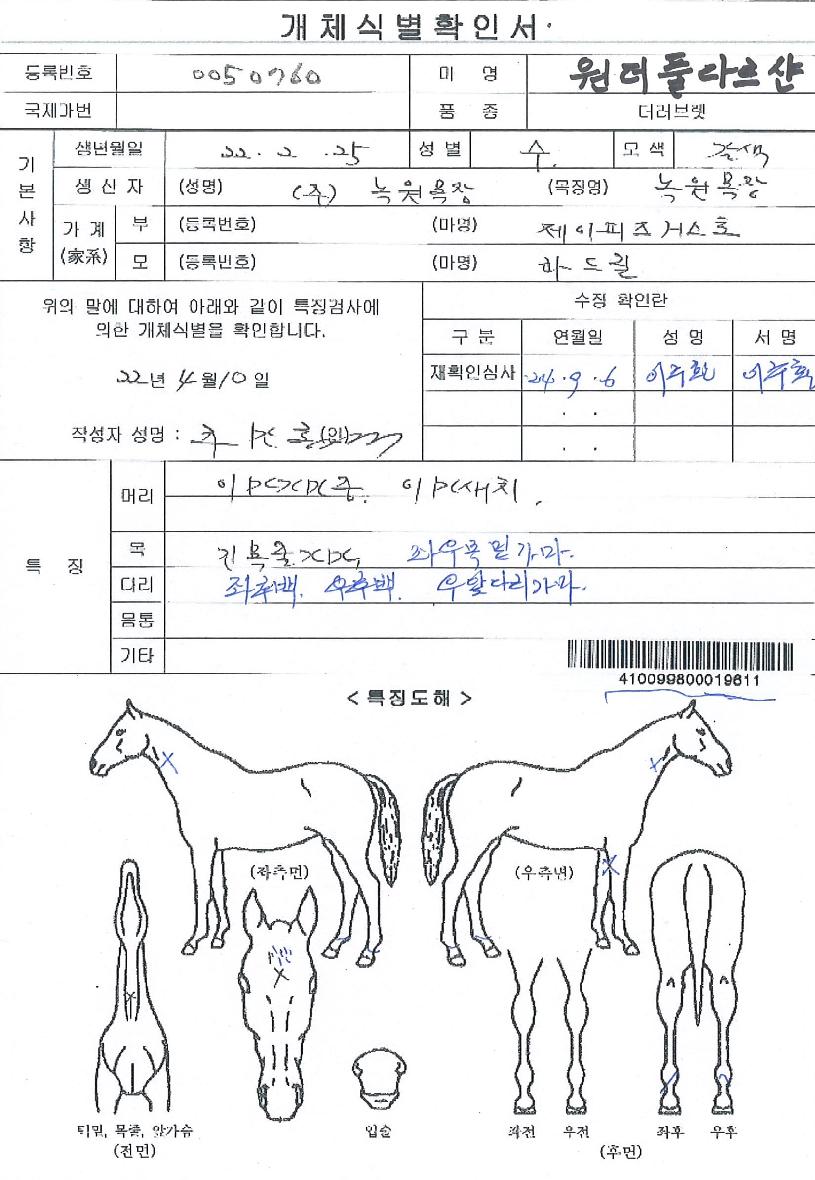 개체식별확인서
등록번호 0050760 마 명 원더풀다르샨
국제마번 품 종 더러브렛
기본사항
생년월일 22. 2. 25 성별 수 모색 갈색
생산자 (성명) (주) 녹원목장 (목장명) 녹원목장
가계(家系) 부 (등록번호) (마명) 제이피즈거스토
모 (등록번호) (마명) 하드퀸
위의 말에 대하여 아래와 같이 특징검사에
의한 개체식별을 확인합니다.
22년 4월 10일
작성자 성명 : (인)
수정 확인란
구 분 연월일 성 명 서 명
재확인심사 24. 9. 6
. .
. .
특 징
머리
목 좌우목밑가마.
다리 좌후백. 우후백. 우앞다리가마.
몸통
기타
410099800019611
< 특징도해 >
(좌측면)
(우측면)
턱밑, 목줄, 앞가슴
(전면)
입술
좌전 우전 좌후 우후
(후면)